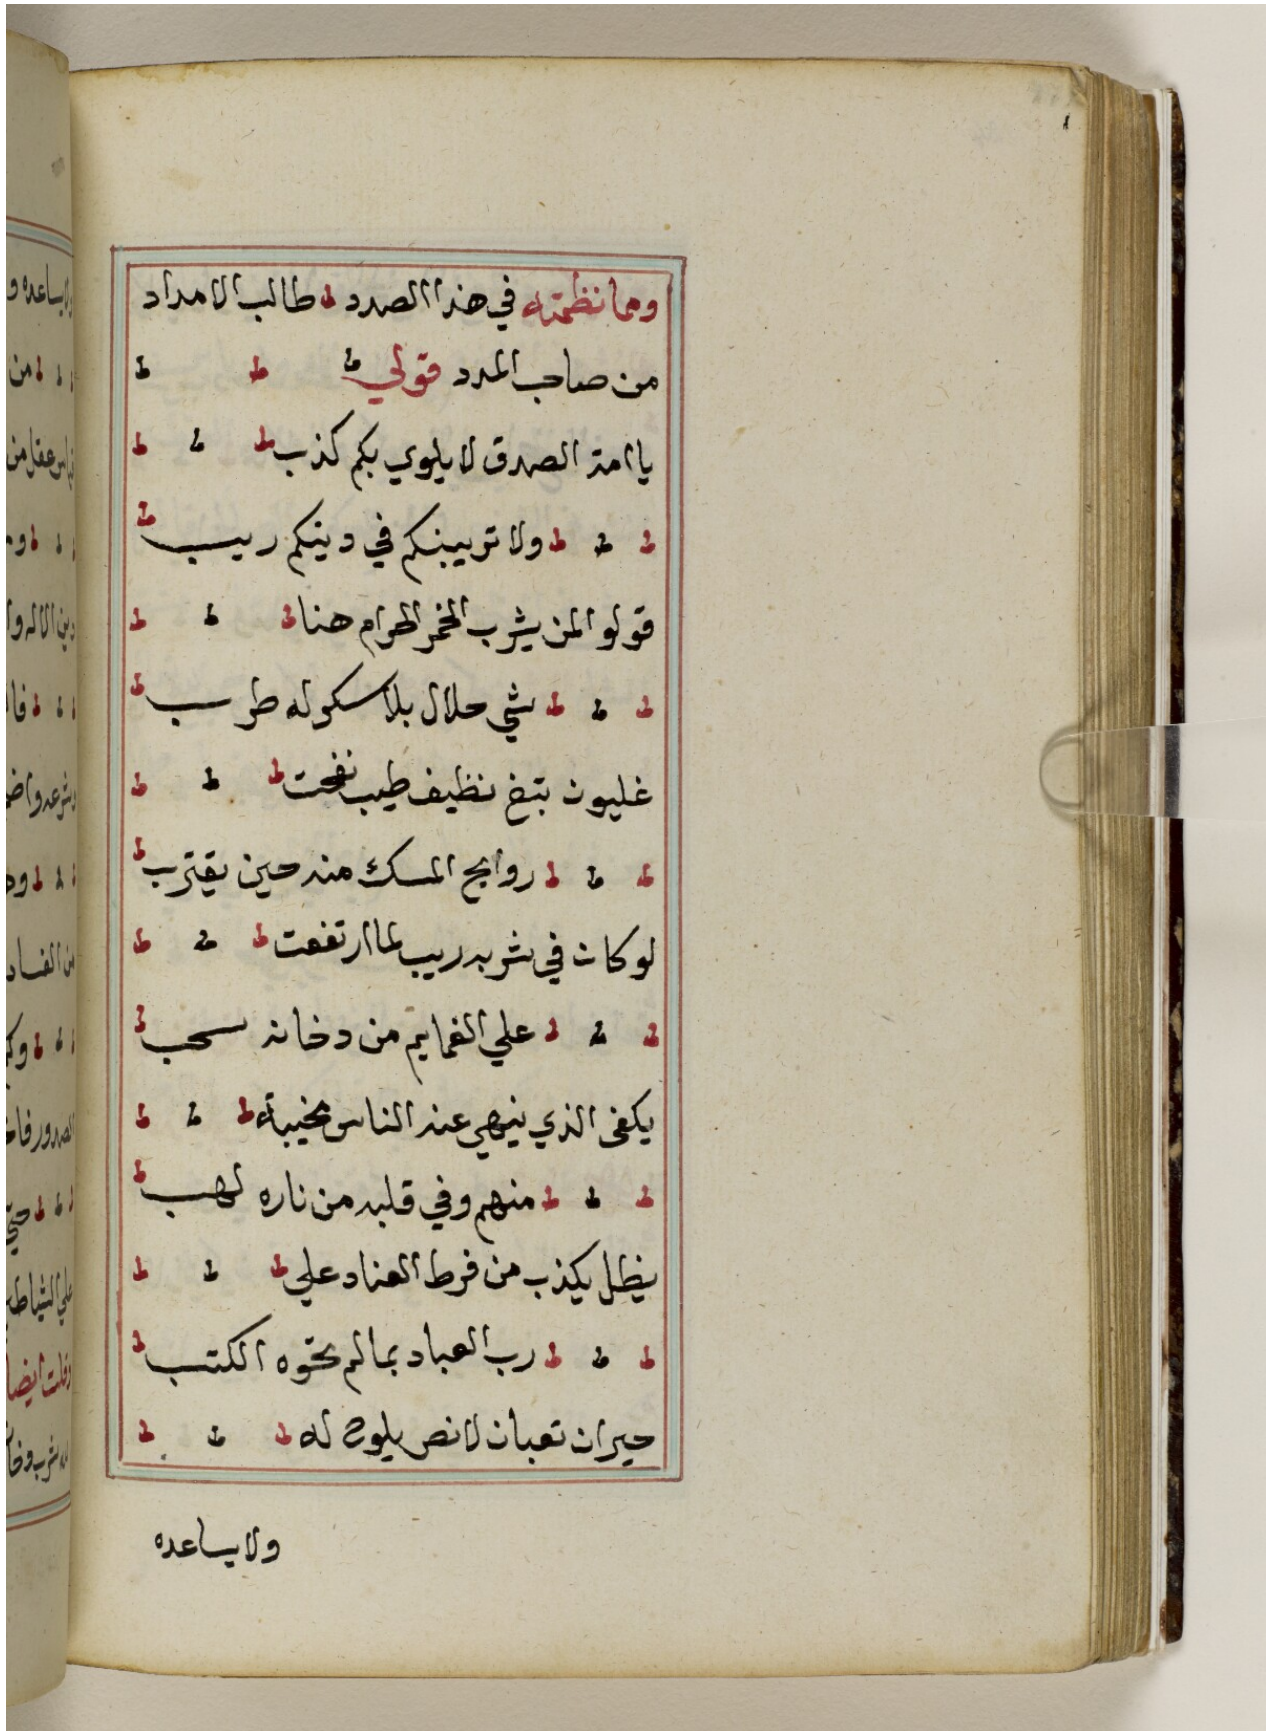 ومما نظمته في هذا الصدد طالب الامداد
من صاحب المدد قولي
يا امة الصدق لا يلوي بكم كذب
ولا تريبنكم في دينكم ريب
قولوا لمن يشرب الخمر الحرام هنا
شي حلال بلا سكر له طرب
غليون بتغ نظيف طيب نفحت
روايح المسك منه حين يقترب
لو كان في شربه ريب لما ارتفعت
علي الغمايم من دخانه سحب
يكفي الذي ينهي عنه الناس مخيبة
منهم وفي قلبه من ناره لهب
يظل يكذب من فرط العناد علي
رب العباد بما لم تحوه الكتب
حيران تعبان لا نص يلوح له
ولا يساعده